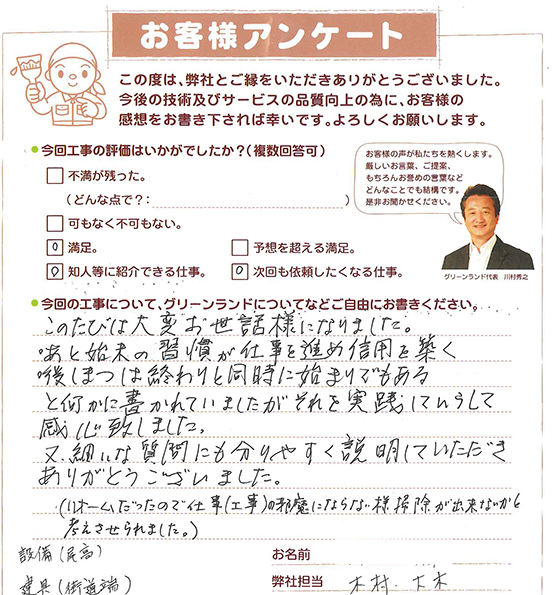 お客様アンケート
この度は、弊社とご縁をいただきありがとうございました。
今後の技術及びサービスの品質向上の為に、お客様の
感想をお書き下されば幸いです。よろしくお願いします。
今回工事の評価はいかがでしたか?(複数回答可)
不満が残った。
(どんな点で?: )
可もなく不可もなく。
満足。
予想を超える満足。
知人等に紹介できる仕事。
次回も依頼したくなる仕事。
お客様の声が私たちを熱くします。
厳しいお言葉、ご提案、
もちろんお誉めの言葉など
どんなことでも結構です。
是非お聞かせください。
グリーンランド代表 川村秀之
今回の工事について、グリーンランドについてなどご自由にお書きください。
このたびは大変お世話様になりました。
あと始末の習慣が仕事を進め信用を築く
後しまつは終わりと同時に始まりでもある
と何かに書かれていましたがそれを実践していらして
感心致しました。
又、細いな質問にも分りやすく説明していただき
ありがとうございました。
(リホームだったので仕事(工事)の邪魔にならない様掃除が出来ないかと
考えさせられました。)
設備(尾高)
建具(街道端)
お名前
弊社担当 木村・大木